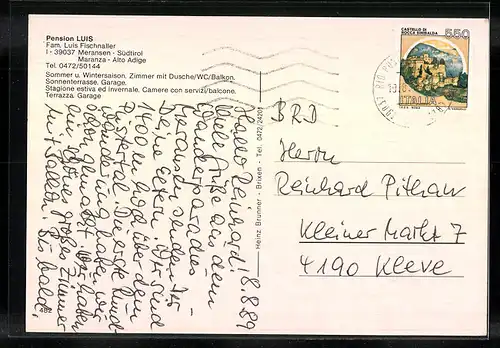 Pension LUIS
Fam. Luis Fischnaller
I - 39037 Meransen - Südtirol
Maranza - Alto Adige
Tel. 0472/50144
Sommer u. Wintersaison. Zimmer mit Dusche/WC/Balkon.
Sonnenterrasse, Garage.
Stagione estiva ed invernale. Camere con servizi/balcone.
Terrazza. Garage
8.8.89
Hallo Reinhard!
Viele Grüße aus dem
Wanderparadies
Meransen senden Dir
Deine Eltern. Wir sind
1400 m hoch über dem
Pustertal. Die erste Rund-
wanderung haben wir
schon gemacht. Wir haben
ein schönes großes Zimmer
mit Balkon. Bis bald.
462
Heinz Brunner - Brixen - Tel. 0472/24201
CASTELLO DI
ROCCA SINIBALDA
550
ITALIA
BRD
Herrn
Reinhard Pithan
Kleiner Markt 7
4190 Kleve